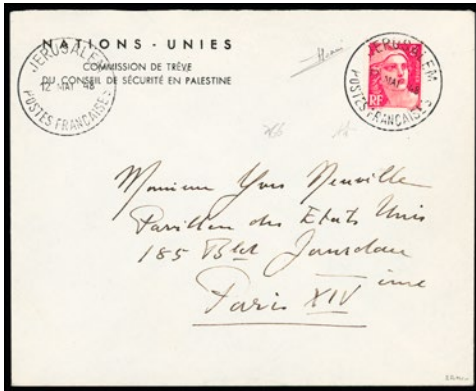 NATIONS - UNIES
COMMISSION DE TRÊVE
DU CONSEIL DE SÉCURITÉ EN PALESTINE
JERUSALEM
12 MAI 48
POSTES FRANÇAISES
JERUSALEM
12 MAI 48
POSTES FRANÇAISES
RF
Monsieur Yves Neuville
Pavillon des Etats Unis
185 Bld Jourdan
Paris XIV ième